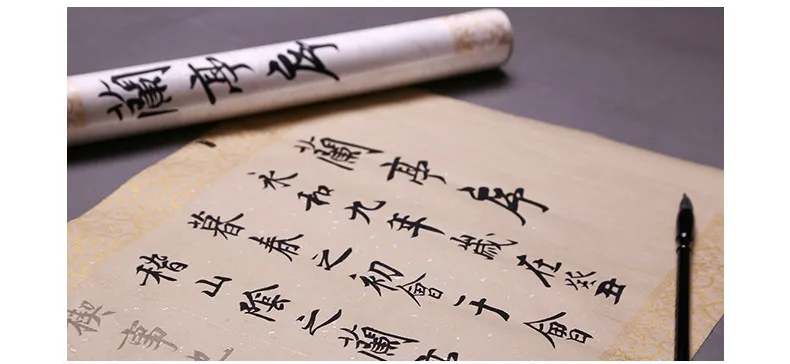 蘭亭序
蘭亭序
永和九年歲在癸丑
暮春之初會于會
稽山陰之蘭亭
稧事也